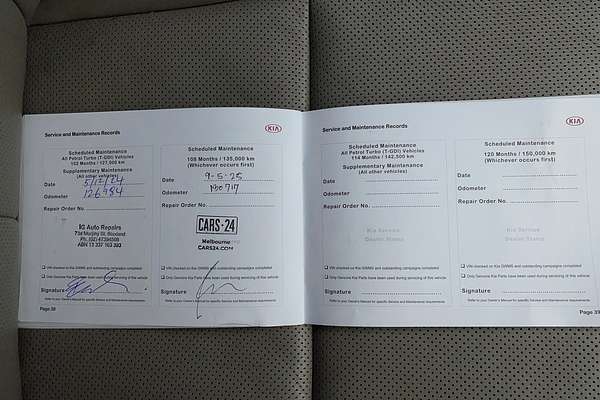 Service and Maintenance Records
KIA
Scheduled Maintenance
All Petrol Turbo (T-GDI) Vehicles
102 Months / 127,500 km
Supplementary Maintenance
(All other vehicles)
Date 5/12/24
Odometer 126984
Repair Order No.
IG Auto Repairs
Blaxland
VIN checked on Kia GWMS and outstanding campaigns completed
Only Genuine Kia Parts have been used during servicing of this vehicle
Signature
Refer to your Owner's Manual for specific Service and Maintenance requirements
Page 38
Scheduled Maintenance
108 Months / 135,000 km
(Whichever occurs first)
Date 9-5-25
Odometer 130717
Repair Order No.
CARS-24
Melbourne
CARS24.COM
VIN checked on Kia GWMS and outstanding campaigns completed
Only Genuine Kia Parts have been used during servicing of this vehicle
Signature
Refer to your Owner's Manual for specific Service and Maintenance requirements
Service and Maintenance Records
KIA
Scheduled Maintenance
All Petrol Turbo (T-GDI) Vehicles
114 Months / 142,500 km
Supplementary Maintenance
(All other vehicles)
Date
Odometer
Repair Order No.
Kia Service
Dealer Stamp
VIN checked on Kia GWMS and outstanding campaigns completed
Only Genuine Kia Parts have been used during servicing of this vehicle
Signature
Refer to your Owner's Manual for specific Service and Maintenance requirements
Scheduled Maintenance
120 Months / 150,000 km
(Whichever occurs first)
Date
Odometer
Repair Order No.
Kia Service
Dealer Stamp
VIN checked on Kia GWMS and outstanding campaigns completed
Only Genuine Kia Parts have been used during servicing of this vehicle
Signature
Refer to your Owner's Manual for specific Service and Maintenance requirements
Page 39